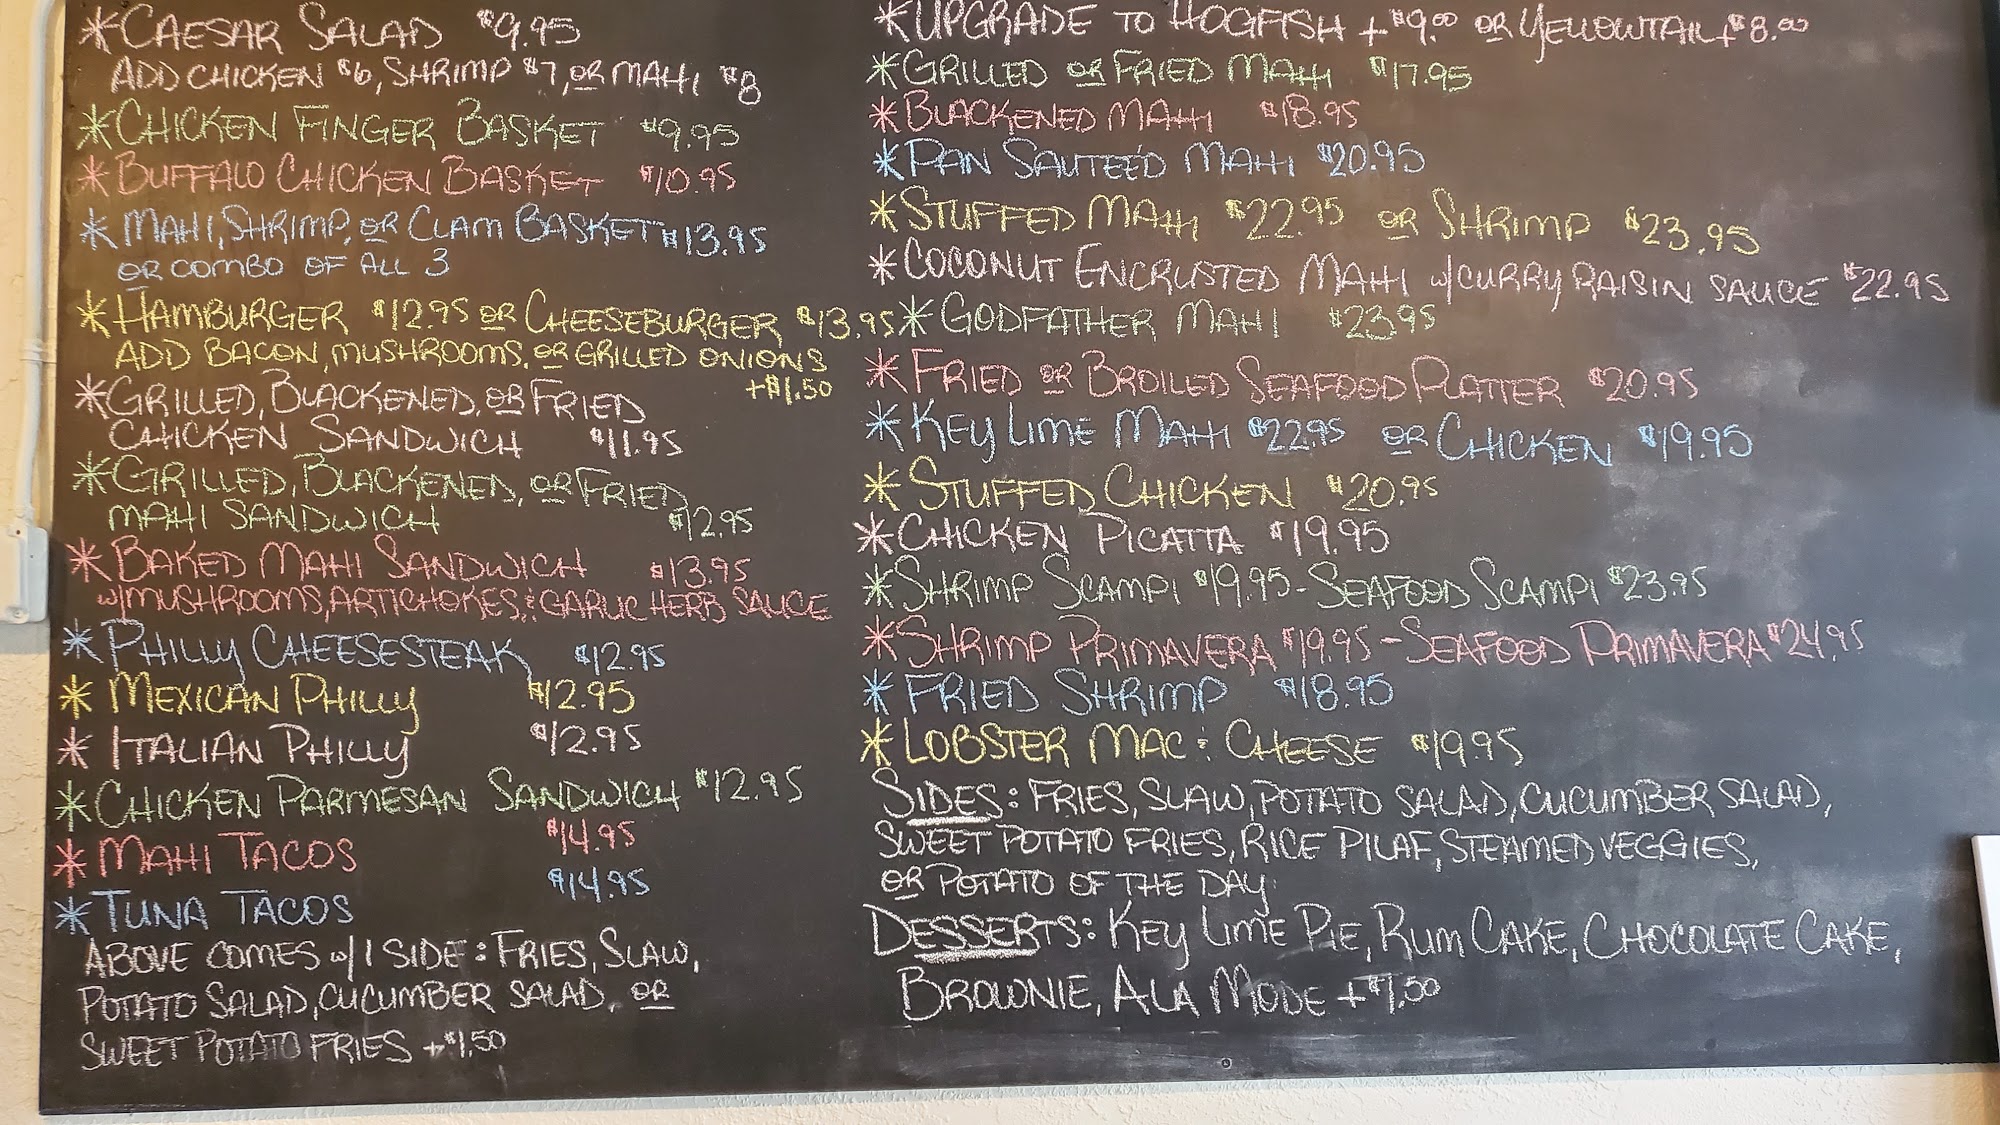 *CAESAR SALAD $9.95
ADD CHICKEN $6, SHRIMP $7, OR MAHI $8
*CHICKEN FINGER BASKET $9.95
*BUFFALO CHICKEN BASKET $10.95
*MAHI, SHRIMP, OR CLAM BASKET $13.95
OR COMBO OF ALL 3
*HAMBURGER $12.95 OR CHEESEBURGER $13.95
ADD BACON, MUSHROOMS, OR GRILLED ONIONS
+$1.50
*GRILLED, BLACKENED, OR FRIED
CHICKEN SANDWICH $11.95
*GRILLED, BLACKENED, OR FRIED
MAHI SANDWICH $12.95
*BAKED MAHI SANDWICH $13.95
w/MUSHROOMS, ARTICHOKES, & GARLIC HERB SAUCE
*PHILLY CHEESESTEAK $12.95
*MEXICAN PHILLY $12.95
*ITALIAN PHILLY $12.95
*CHICKEN PARMESAN SANDWICH $12.95
*MAHI TACOS $14.95
*TUNA TACOS $14.95
ABOVE COMES w/1 SIDE: FRIES, SLAW,
POTATO SALAD, CUCUMBER SALAD, OR
SWEET POTATO FRIES +$1.50
*UPGRADE TO HOGFISH +$9.00 OR YELLOWTAIL +$8.00
*GRILLED OR FRIED MAHI $17.95
*BLACKENED MAHI $18.95
*PAN SAUTEÉD MAHI $20.95
*STUFFED MAHI $22.95 OR SHRIMP $23.95
*COCONUT ENCRUSTED MAHI w/CURRY RAISIN SAUCE $22.95
*GODFATHER MAHI $23.95
*FRIED OR BROILED SEAFOOD PLATTER $20.95
*KEY LIME MAHI $22.95 OR CHICKEN $19.95
*STUFFED CHICKEN $20.95
*CHICKEN PICATTA $19.95
*SHRIMP SCAMPI $19.95 - SEAFOOD SCAMPI $23.95
*SHRIMP PRIMAVERA $19.95 - SEAFOOD PRIMAVERA $24.95
*FRIED SHRIMP $18.95
*LOBSTER MAC & CHEESE $19.95
SIDES: FRIES, SLAW, POTATO SALAD, CUCUMBER SALAD,
SWEET POTATO FRIES, RICE PILAF, STEAMED VEGGIES,
OR POTATO OF THE DAY.
DESSERTS: KEY LIME PIE, RUM CAKE, CHOCOLATE CAKE,
BROWNIE, ALA MODE +$1.50